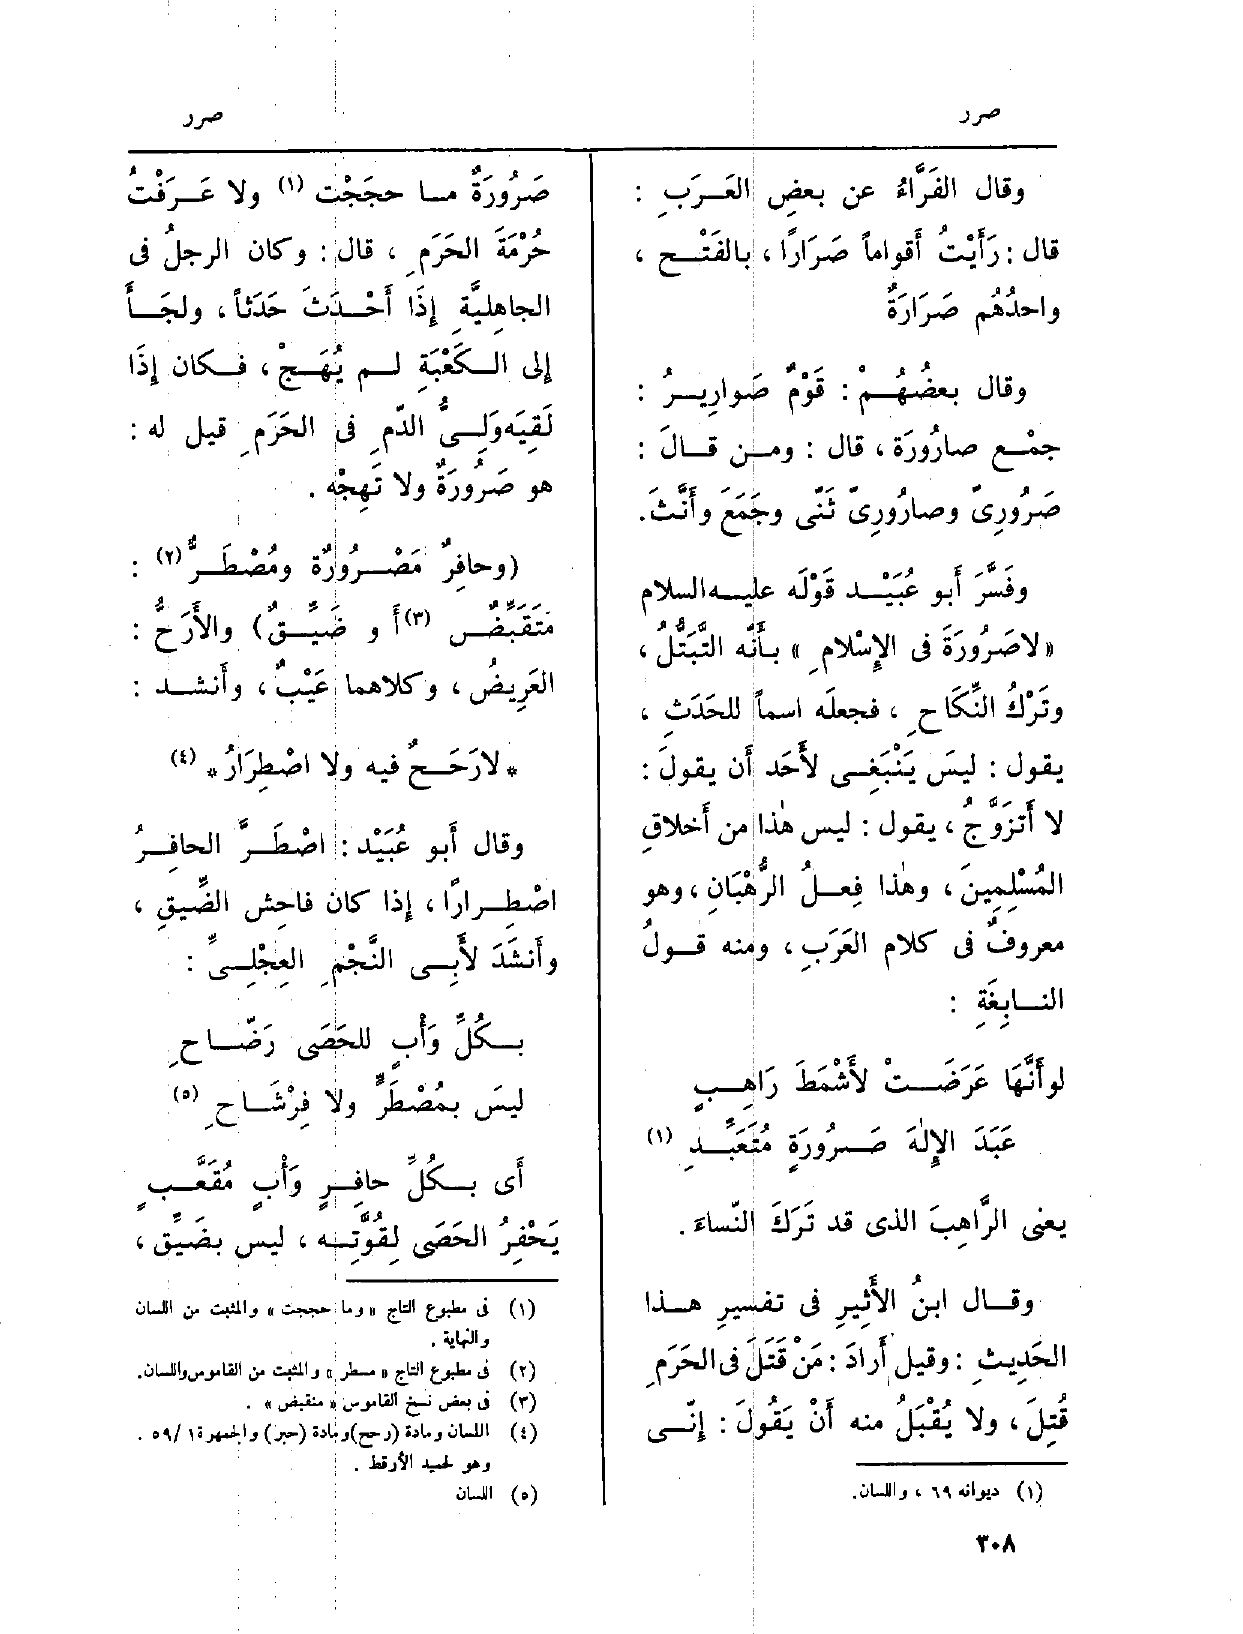 صرر
صرر
وقال الفَرَّاءُ عن بعضِ العَرَبِ :
قال : رَأَيْتُ أَقواماً صَرَارًا ، بالفَتْح ،
واحدُهُم صَرَارَةٌ
وقال بعضُهُمْ : قَوْمٌ صَوارِيرُ :
جمْع صارُورَة ، قال : ومن قَالَ :
صَرُورِىّ وصارُورِىّ ثَنَّى وجَمَعَ وأَنَّثَ.
وفَسَّرَ أَبو عُبَيْد قوْلَه عليه السلام
«لاصَرُورَةَ فى الإِسْلامِ » بأَنَّه التَّبَتُّلُ ،
وتَرْكُ النِّكَاحِ ، فجعلَه اسماً للحَدَثِ ،
يقول : ليسَ يَنْبَغِى لأَحَد أَن يقولَ :
لا أَتزوَّجُ ، يقول : ليس هٰذا من أَخلاقِ
المُسْلِمِينَ ، وهٰذا فِعلُ الرُّهْبَانِ ، وهو
معروفٌ فى كلام العَرَبِ ، ومنه قولُ
النابِغَةِ :
لوأَنَّهَا عَرَضَتْ لأَشْمَطَ رَاهِبٍ
عَبَدَ الإِلٰهَ صَرُورَةٍ مُتَعَبِّدِ (١)
يعنى الرَّاهِبَ الذى قد تَرَكَ النِّساءَ .
وقال ابنُ الأَثِيرِ فى تفسيرِ هذا
الحَدِيثِ : وقيل أَرادَ : مَنْ قَتَلَ فى الحَرَمِ
قُتِلَ ، ولا يُقْبَلُ منه أَنْ يَقُولَ : إِنِّى
(١) ديوانه ٦٩ ، واللسان.
٣٠٨
صَرُورَةٌ ما حجَجْت (١) ولا عَرَفْتُ
حُرْمَةَ الحَرَمِ ، قال : وكان الرجلُ فى
الجاهليَّةِ إِذَا أَحْدثَ حَدَثاً ، ولجأَ
إلى الكَعْبَةِ لم يُهَجْ ، فكان إِذَا
لَقِيَه وَلِىُّ الدّمِ فى الحَرَمِ قيل له :
هو صَرُورَةٌ ولا تَهِجْه .
(وحافِرٌ مَصْرُورَةٌ ومُصْطَرٌّ (٢) :
مُتَقَبِّضٌ (٣) أَو ضَيِّقٌ) والأَرَحُّ :
العَرِيضُ ، وكلاهما عَيْبٌ ، وأَنشد :
* لارَحَحٌ فيه ولا اصْطِرَارُ * (٤)
وقال أَبو عُبَيْد : اصْطَرَّ الحافِرُ
اصْطِرارًا ، إذا كان فاحش الضِّيقِ ،
وأَنشَدَ لأَبِى النَّجْمِ العِجْلِىِّ :
بكُلِّ وَأْبٍ للحَصَى رَضَّاحِ
ليسَ بمُصْطَرٍّ ولا فِرْشَاحِ (٥)
أَى بكُلِّ حافِرٍ وَأْبٍ مُقَعَّبٍ
يَحْفِرُ الحَصَى لِقُوَّتِه ، ليس بضَيِّق ،
(١) فى مطبوع التاج «وما حججت » والمثبت من اللسان
والنهاية .
(٢) فى مطبوع التاج « مسطر » والمثبت من القاموس واللسان.
(٣) فى بعض نسخ القاموس « منقبض » .
(٤) اللسان ومادة (رحح) ومادة (حبر) والجمهرة ١ /٥٩ .
وهو لحميد الأرقط .
(٥) اللسان